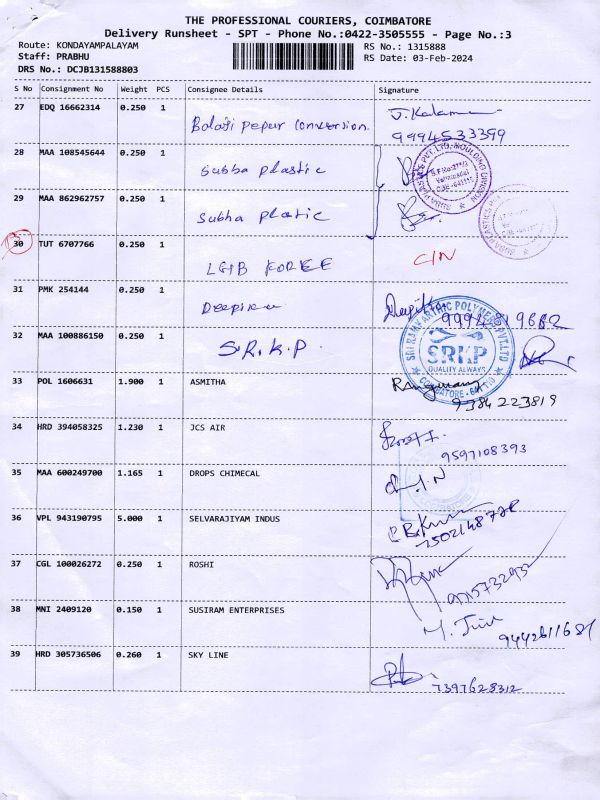 THE PROFESSIONAL COURIERS, COIMBATORE
Delivery Runsheet - SPT - Phone No.:0422-3505555 - Page No.:3
Route: KONDAYAMPALAYAM RS No.: 1315888
Staff: PRABHU RS Date: 03-Feb-2024
DRS No.: DCJB131588803
S No Consignment No Weight PCS Consignee Details Signature
27 EDQ 16662314 0.250 1 Balaji pepur conversion. J. Kalama
9994533399
28 MAA 108545644 0.250 1 Subba plastic
29 MAA 862962757 0.250 1 Subha plastic
30 TUT 6707766 0.250 1 LGIB FOREE C/N
31 PMK 254144 0.250 1 Deepika Deepika
32 MAA 100886150 0.250 1 S.R.K.P.
SRI RAMKARTHIC POLYMERS PVT.LTD
SRKP
QUALITY ALWAYS
33 POL 1606631 1.900 1 ASMITHA
9384223819
34 HRD 394058325 1.230 1 JCS AIR
9597108393
35 MAA 600249700 1.165 1 DROPS CHIMECAL
36 VPL 943190795 5.000 1 SELVARAJIYAM INDUS
37 CGL 100026272 0.250 1 ROSHI
38 MNI 2409120 0.150 1 SUSIRAM ENTERPRISES
9442611681
39 HRD 305736506 0.260 1 SKY LINE
7397628312